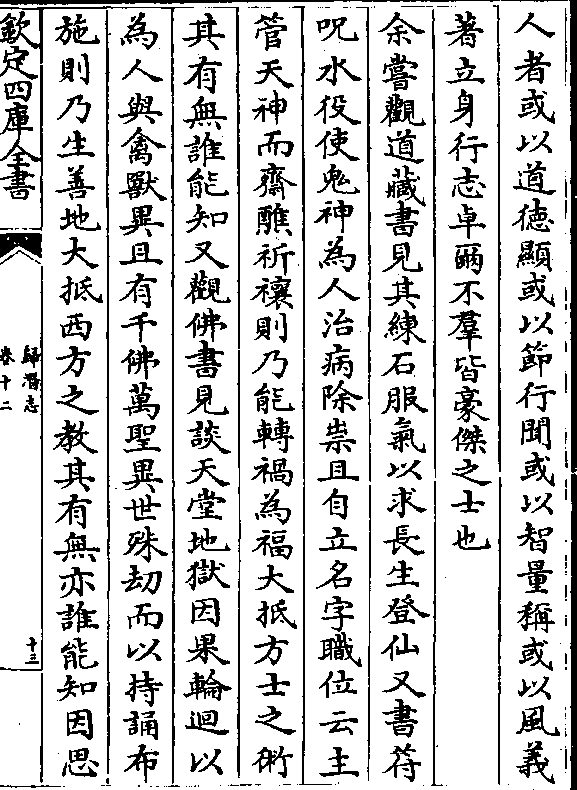 人者或以道德顯或以節行聞或以智量稱或以風義
著立身行志卓爾不羣皆豪傑之士也
余嘗觀道藏書見其練石服氣以求長生登仙又書符
呪水役使鬼神為人治病除祟且自立名字職位云主
管天神而齋醮祈禳則乃能轉禍為福大抵方士之術
其有無誰能知又觀佛書見談天堂地獄因果輪迴以
為人與禽獸異且有千佛萬聖異世殊劫而以持誦布
施則乃生善地大抵西方之教其有無亦誰能知因思
欽定四庫全書
歸潛志
卷十二
十三